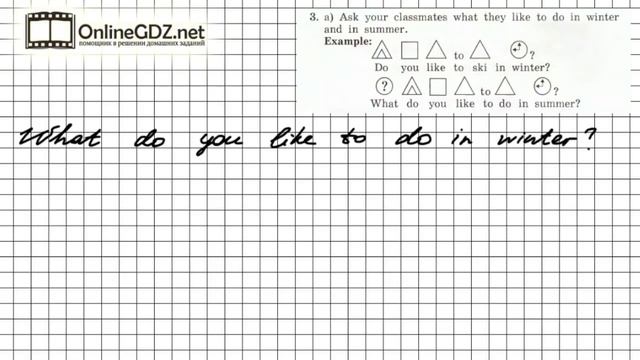 OnlineGDZ.net
помощник в решении домашних заданий
3. a) Ask your classmates what they like to do in winter
and in summer.
Example:
to ?
Do you like to ski in winter?
? to ?
What do you like to do in summer?
What do you like to do in winter?